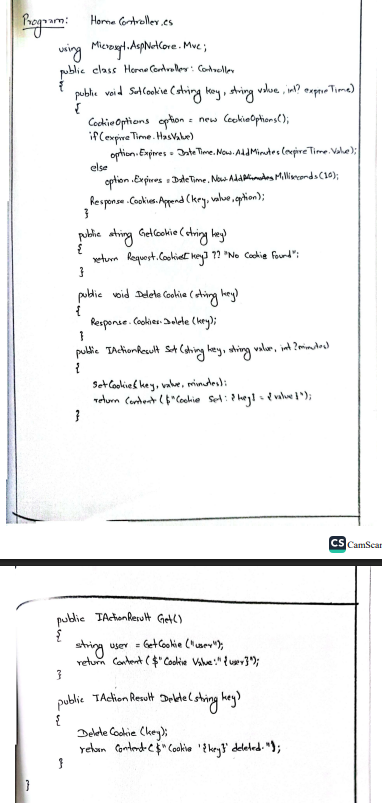 Program: HomeController.cs
using Microsoft.AspNetCore.Mvc;
public class HomeController : Controller
{
public void SetCookie (string key, string value, int? expireTime)
{
CookieOptions option = new CookieOptions();
if(expireTime.HasValue)
option.Expires = DateTime.Now.AddMinutes(expireTime.Value);
else
option.Expires = DateTime.Now.AddMilliseconds(10);
Response.Cookies.Append(key, value, option);
}
public string GetCookie(string key)
{
return Request.Cookies[key] ?? "No Cookie Found";
}
public void DeleteCookie (string key)
{
Response.Cookies.Delete (key);
}
public IActionResult Set (string key, string value, int ? minutes)
{
SetCookie(key, value, minutes);
return Content ($"Cookie Set : {key} = {value}");
}
CS CamScan
public IActionResult Get()
{
string user = GetCookie ("user");
return Content ($"Cookie Value:" {user}");
}
public IActionResult Delete (string key)
{
DeleteCookie (key);
return Content ($"Cookie '{key}' deleted.");
}
}